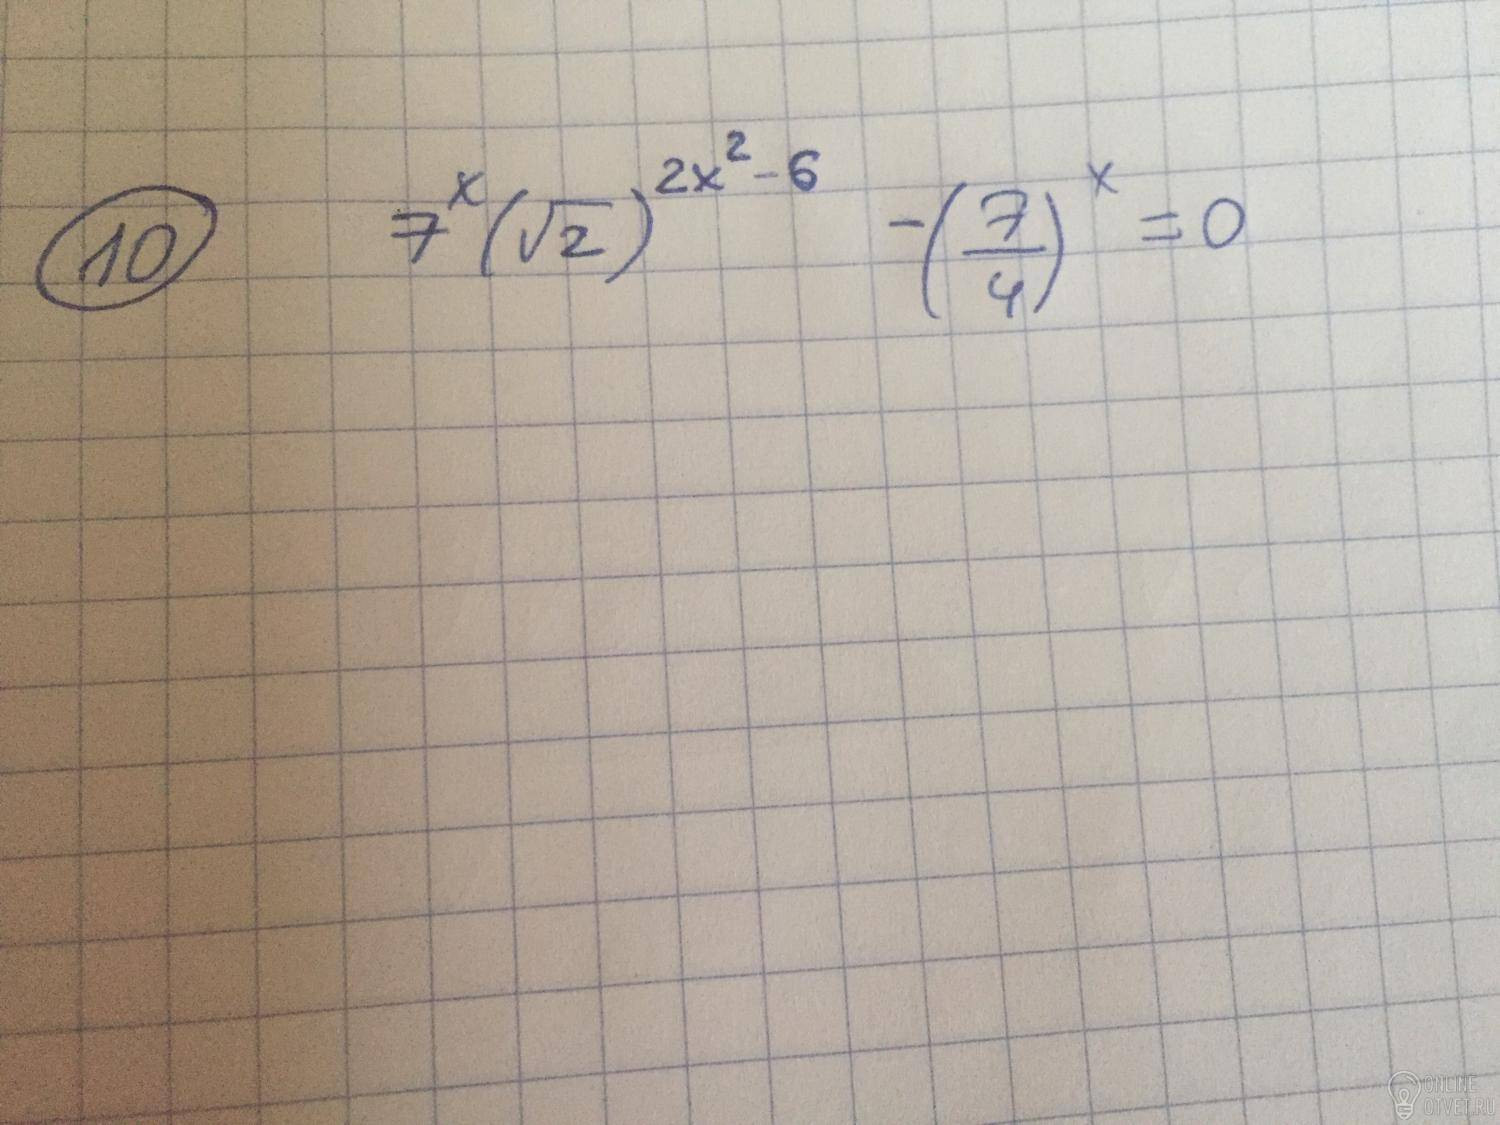 10 7^x (√2)^(2x²-6) - (7/4)^x = 0
ONLINE
OTVET.RU